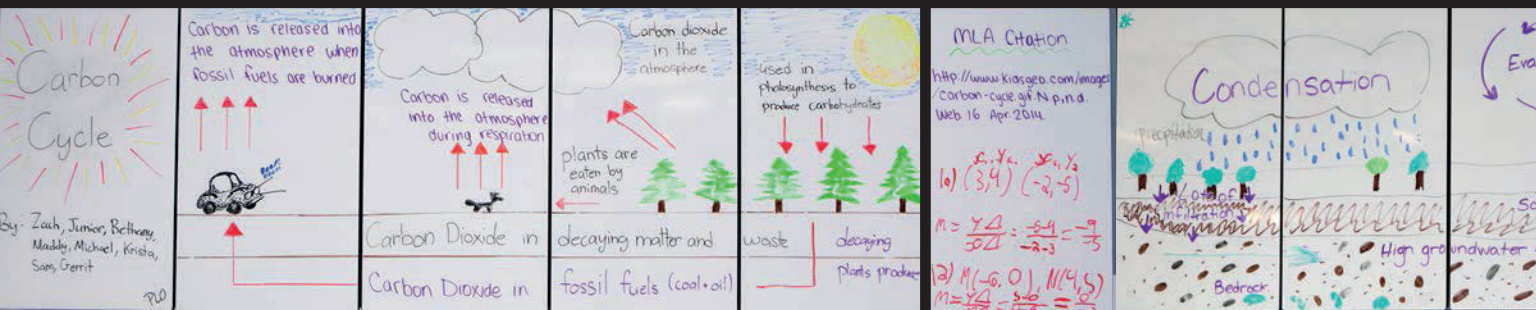 Carbon
Cycle
By: Zach, Junior, Bethany,
Maddy, Michael, Krista,
Sam, Gerrit
PLO
Carbon is released into
the atmosphere when
fossil fuels are burned
Carbon is released
into the atmosphere
during respiration
Carbon Dioxide in
Carbon Dioxide in
Carbon dioxide
in the
atmosphere
plants are
eaten by
animals
decaying matter and
fossil fuels (coal+oil)
used in
photosynthesis to
produce carbohydrates
waste
decaying
plants produce
MLA Citation
http://www.kidsgeo.com/images
/carbon-cycle.gif. N.p, n.d.
Web. 16 Apr. 2014.
10) (3,4) (-2,-5)
12) M(-6,0), N(4,5)
Condensation
precipitation
Lots of
infiltration
High groundwater
Bedrock